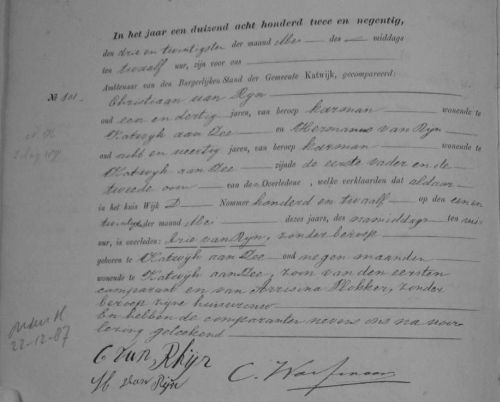 In het jaar een duizend acht honderd twee en negentig,
den drie en twintigsten der maand Mei des middags
ten twaalf ure, zijn voor ons
Ambtenaar van den Burgerlijken Stand der Gemeente Katwijk, gecompareerd:
No 101. Christiaan van Rijn
oud een en dertig jaren, van beroep karman wonende te
Katwijk aan Zee en Hermanus van Rijn
oud acht en veertig jaren, van beroep karman wonende te
Katwijk aan Zee zijnde de eerste vader en de
tweede oom van den Overledene, welke verklaarden dat aldaar
in het huis Wijk D Nommer honderd en twaalf op den een en
twintigsten der maand Mei dezes jaars, des namiddags ten
ure, is overleden: Arie van Rijn, zonder beroep
geboren te Katwijk aan Zee oud negen maanden
wonende te Katwijk aan Zee, zoon van den eersten
comparant en van Plokker, zonder
beroep zijne huisvrouw
En hebben de comparanten nevens ons na voor-
lezing geteekend
22-12-87
C van Rhijn
H van Rijn